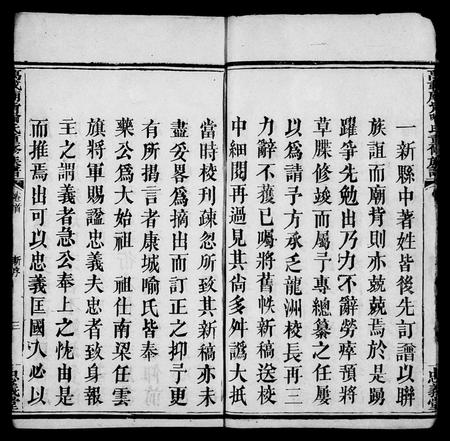 一新縣中著姓皆後先訂譜以聯
族誼而廟背則亦兢兢焉於是踴
躍爭先勉出乃力不辭勞瘁預將
草牒修竣而屬予專總纂之任屢
以為請予方承乏龍洲校長再三
力辭不獲已囑將舊帙新稿送校
中細閱再過見其尙多舛譌大抵
當時校刊疎忽所致其新稿亦未
盡妥畧為摘出而訂正之抑予更
有所揭言者康城喻氏皆奉
藥公為大始祖 祖仕南梁任雲
旗將軍賜諡忠義夫忠者致身報
主之謂義者急公奉上之忱由是
而推焉出可以忠義匡國入必以
新序
三
忠義堂